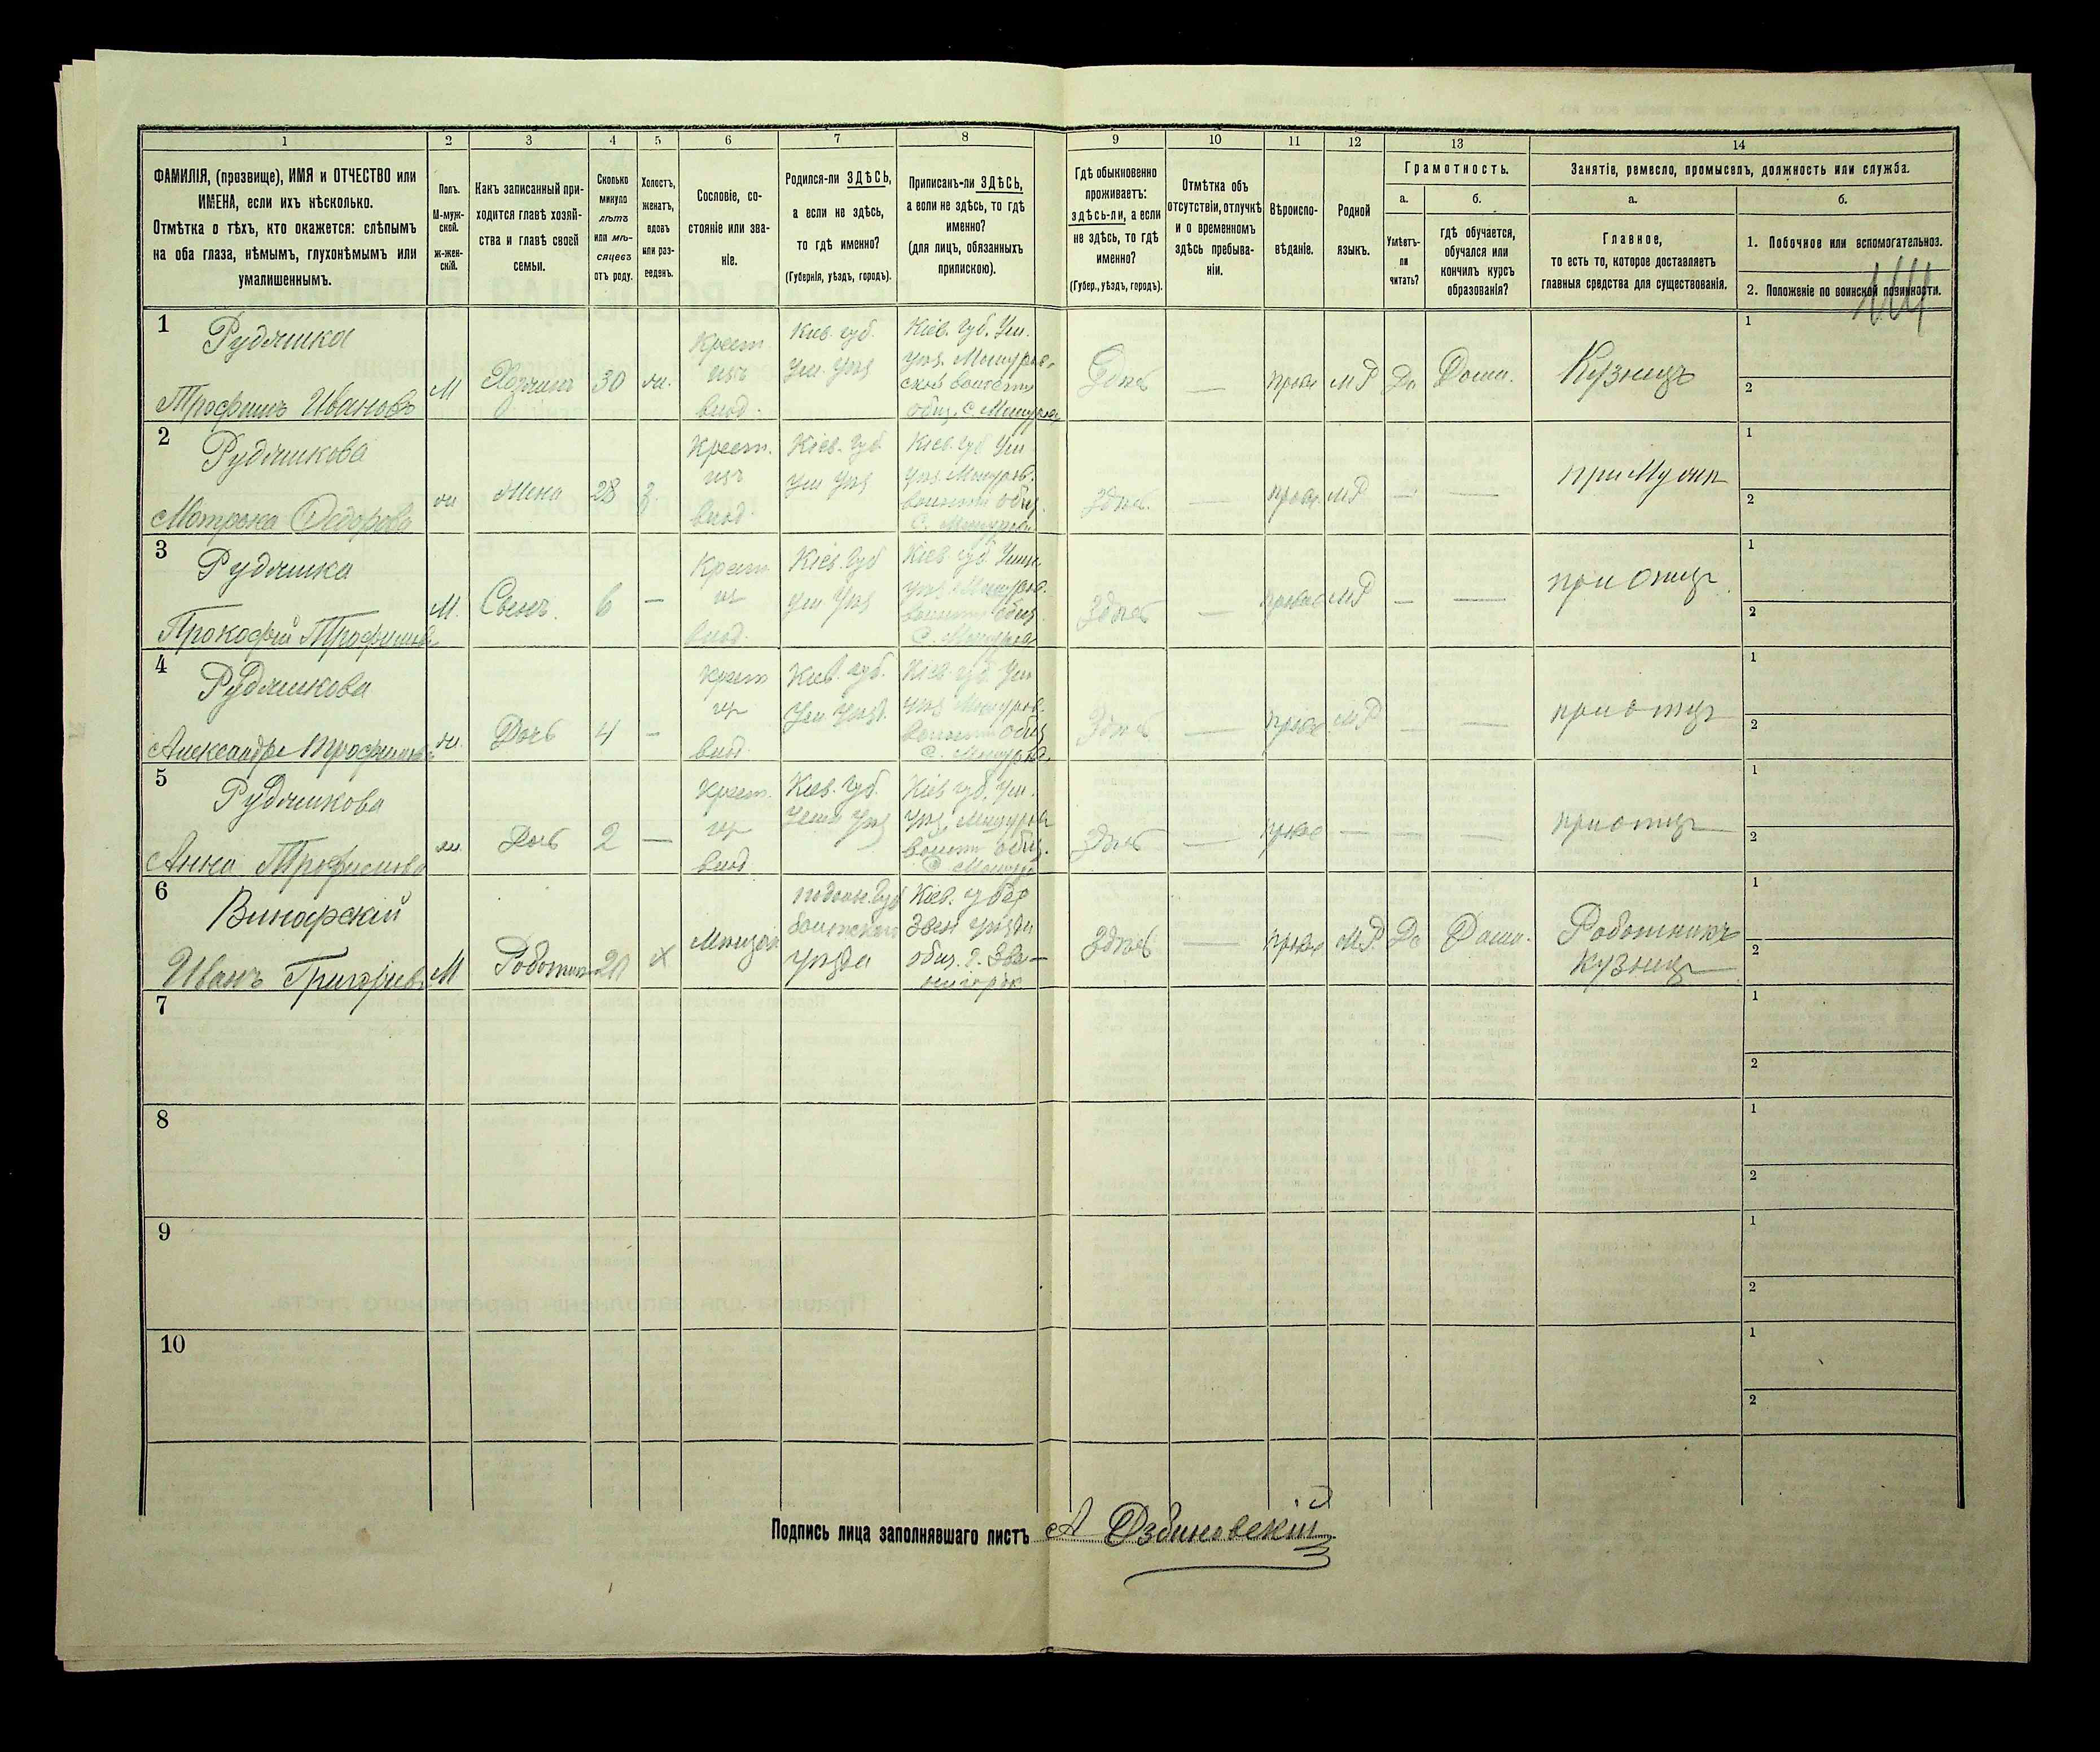 1 2 3 4 5 6 7 8 9 10 11 12 13 14
ФАМИЛІЯ, (прозвище), ИМЯ и ОТЧЕСТВО или
ИМЕНА, если ихъ нѣсколько.
Отмѣтка о тѣхъ, кто окажется: слѣпымъ
на оба глаза, нѣмымъ, глухонѣмымъ или
умалишеннымъ.
Полъ.
М-муж-
ской.
ж-жен-
скій.
Какъ записанный при-
ходится главѣ хозяй-
ства и главѣ своей
семьи.
Сколько
минуло
лѣтъ
или мѣ-
сяцевъ
отъ роду.
Холостъ,
женатъ,
вдовъ
или раз-
веденъ.
Сословіе, со-
стояніе или зва-
ніе.
Родился-ли ЗДѢСЬ,
а если не здѣсь,
то гдѣ именно?
(Губернія, уѣздъ, городъ).
Приписанъ-ли ЗДѢСЬ,
а если не здѣсь, то гдѣ
именно?
(для лицъ, обязанныхъ
припискою).
Гдѣ обыкновенно
проживаетъ:
здѣсь-ли, а если
не здѣсь, то гдѣ
именно?
(Губер., уѣздъ, городъ).
Отмѣтка объ
отсутствіи, отлучкѣ
и о временномъ
здѣсь пребыва-
ніи.
Вѣроиспо-
вѣданіе.
Родной
языкъ.
Грамотность.
а.
Умѣетъ-
ли
читать?
б.
гдѣ обучается,
обучался или
кончилъ курсъ
образованія?
Занятіе, ремесло, промыселъ, должность или служба.
а.
Главное,
то есть то, которое доставляетъ
главныя средства для существованія.
б.
1. Побочное или вспомогательное.
2. Положеніе по воинской повинности.
1
Рудчика
Трофимъ Ивановъ
М
Хозяинъ
30
ж.
Крест.
изъ
влад.
Кіев. губ.
Ум. Уѣз
Кіев. Губ. Ум.
Уѣз. Машуров.
Здѣсь
—
прав
МР
Да
Дома.
Кузнецъ
1
2
2
Рудчикова
Мотрона Федорова
ж
Жена
28
З.
Крест.
изъ
влад.
Кіев. Губ
Ум Уѣз
Кіев. Губ Ум
Здѣсь.
—
прав.
МР.
—
—
при Мужѣ
1
2
3
Рудчика
Прокофій Трофимов
М.
Сынъ.
6
—
Крест.
из
влад.
Кіев. Губ
Ум Уѣз
Кіев. губ Ум.
Здѣсь
—
прав
МР
—
—
при отцѣ
1
2
4
Рудчикова
Александра Трофимова
ж.
Дочь
4
—
Крест
из
влад.
Кіев. губ.
Ум Уѣзд.
Кіев. губ Ум
Здѣсь
—
прав.
МР
—
—
при отцѣ
1
2
5
Рудчикова
Анна Трофимова
ж.
Дочь
2
—
Крест.
из
влад
Кіев. Губ.
Ум. Уѣз
Кіев губ. Ум.
Здѣсь
—
прав
—
—
—
при отцѣ
1
2
6
Винарскій
Иванъ Григорьев
М
Работник
20
х
Мещан
Подольск. Губ
уѣзда
Кіев. губер
Звен уѣзда
общ. г. Зве-
нигорок
Здѣсь
—
прав
М.Р.
Да
Дома.
Работникъ
кузнец
1
2
7
1
2
8
1
2
9
1
2
10
1
2
Подпись лица заполнявшаго листъ